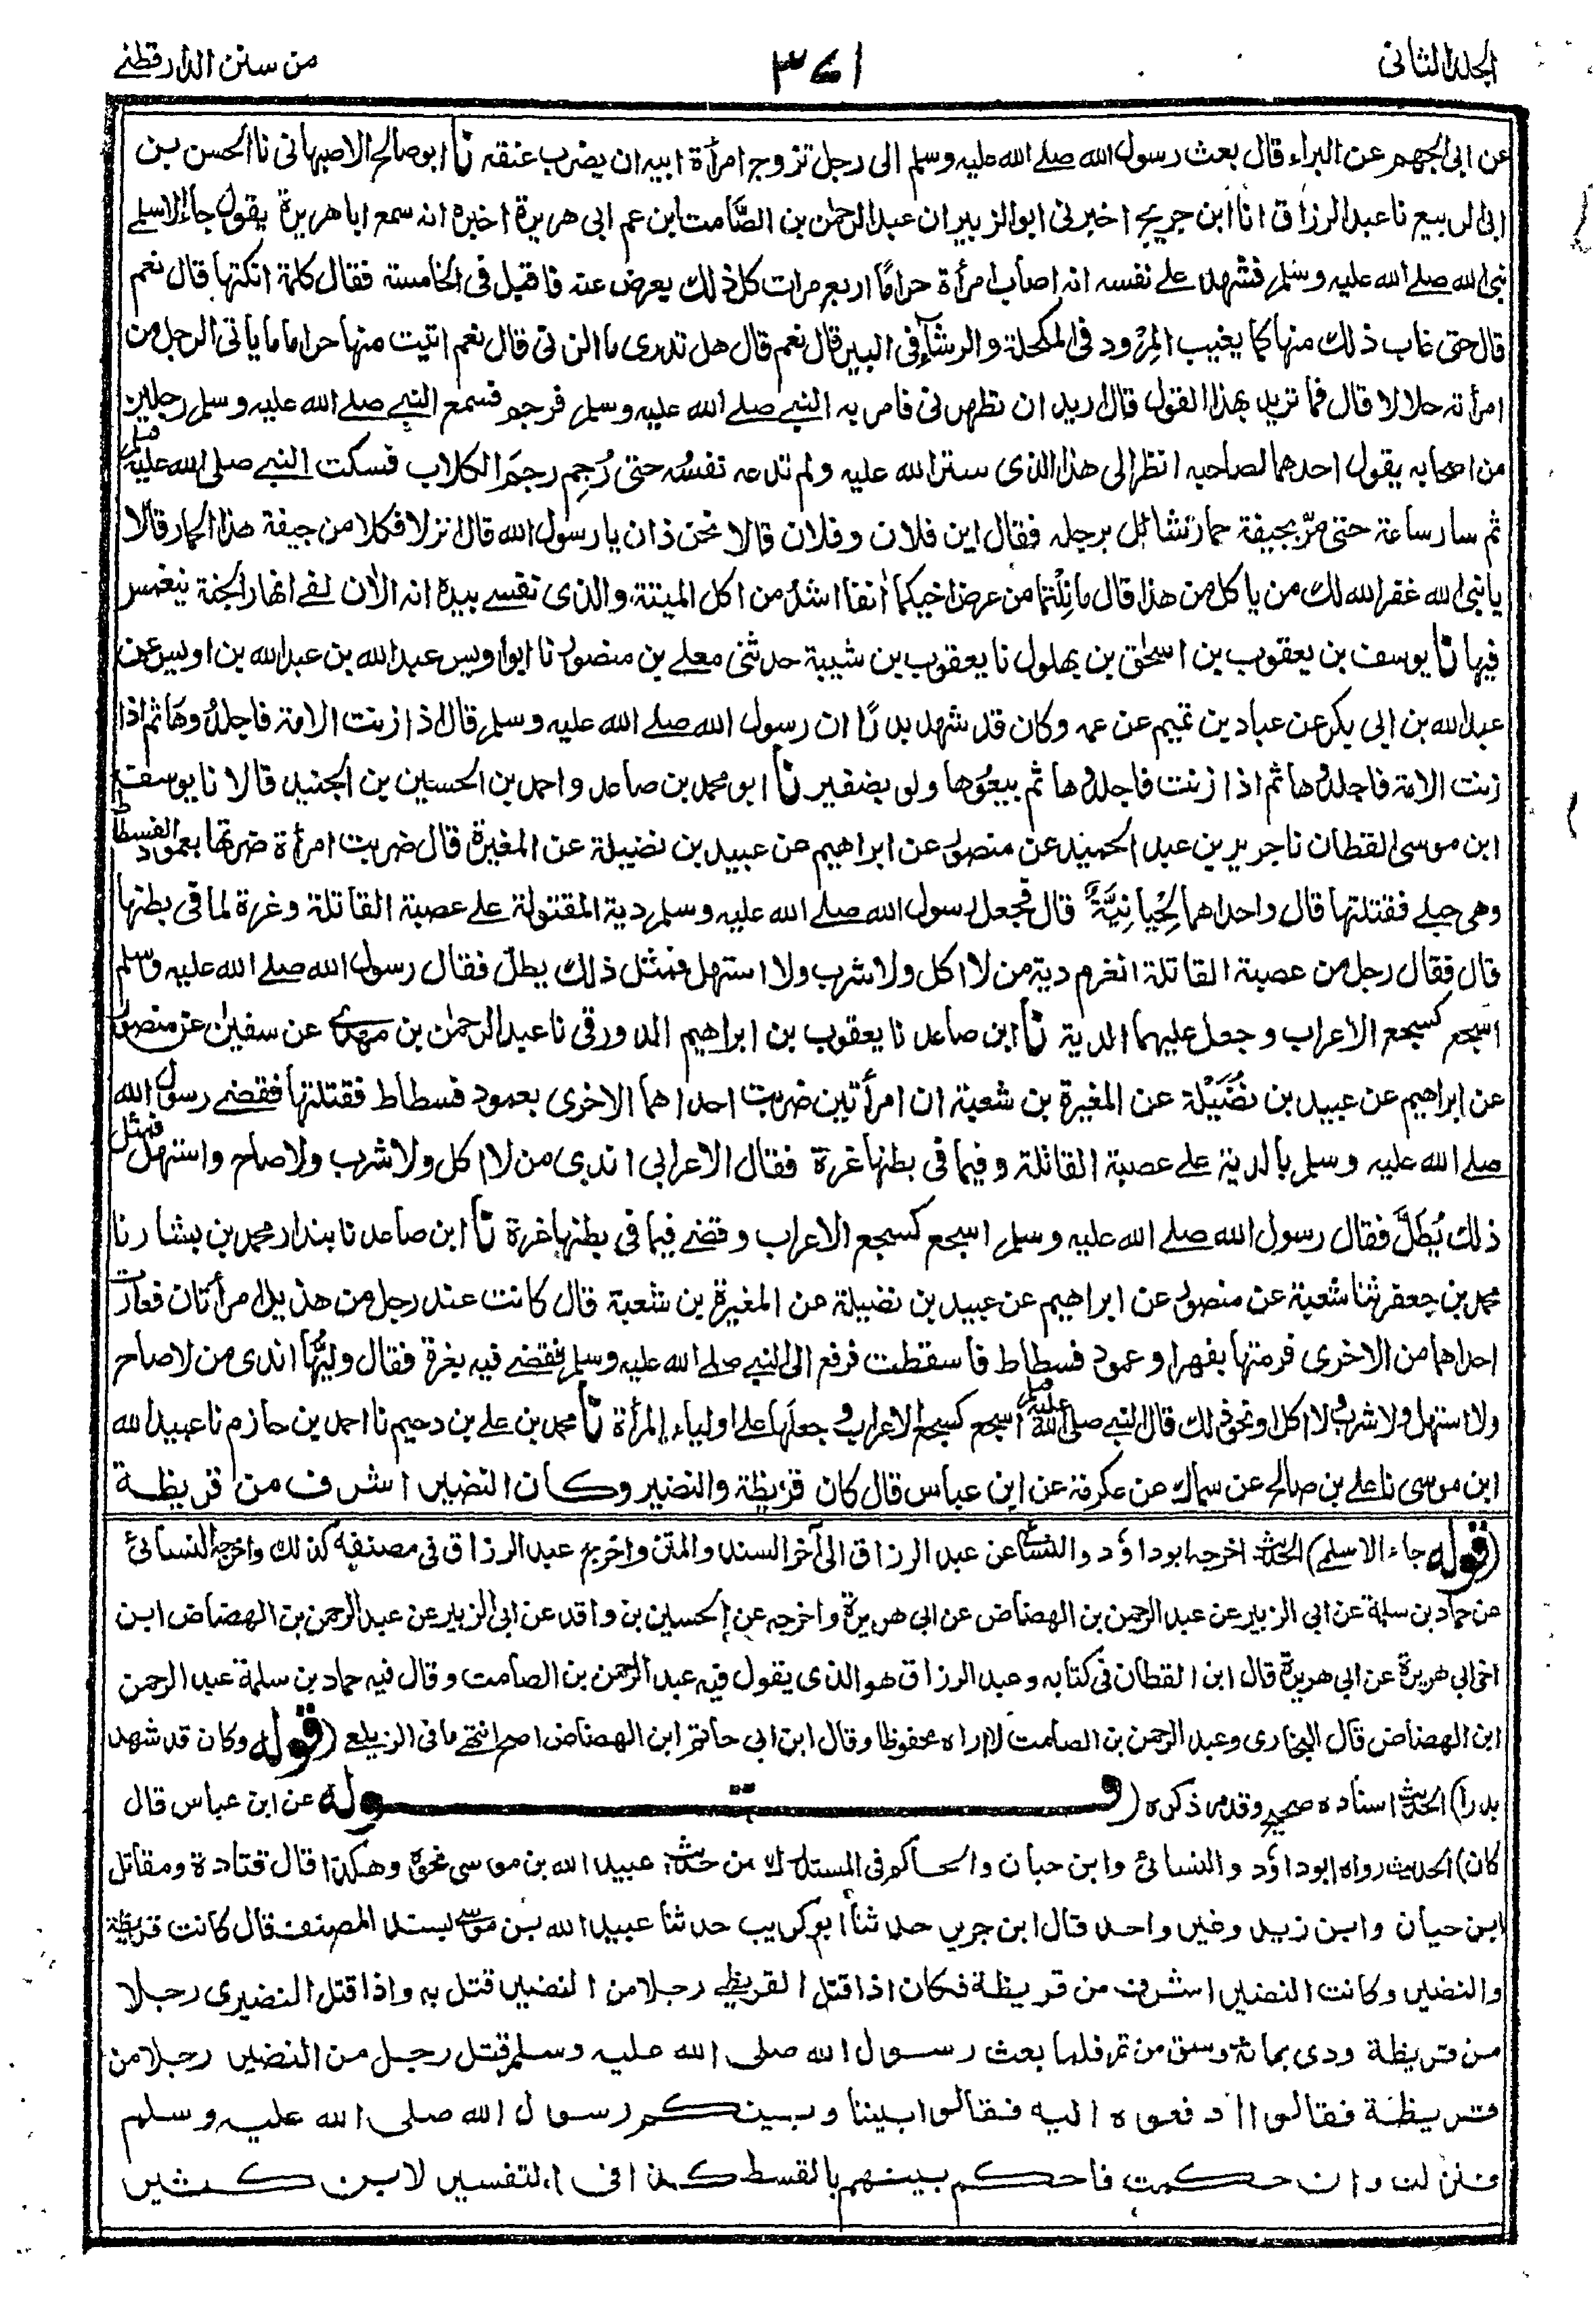 الجلد الثانى
٣٤١
من سنن الدارقطنے
عن ابى الجهم عن البراء قال بعث رسول الله صلے الله عليه وسلم الى رجل تزوج امرأة ابيه ان يضرب عنقه نا ابو صالح الاصبهانى نا الحسن بن
ابى الربيع نا عبد الرزاق انا ابن جريج اخبرنى ابو الزبير ان عبد الرحمن بن الصَّامت ابن عم ابى هريرة اخبره انه سمع ابا هريرة يقول جاء الاسلمے
نبى الله صلے الله عليه وسلم فشهد علے نفسه انه اصاب امرأة حرامًا اربع مرات كل ذلك يعرض عنه فاقبل فى الخامسة فقال كلمة انكتها قال نعم
قال حتى غاب ذلك منها كما يغيب المِرْود فى المكحلة والرشآء فى البير قال نعم قال هل تدرى ما الزنى قال نعم اتيت منها حراما ما ياتى الرجل من
امرأته حلالا قال فما تريد بهذا القول قال اريد ان تطهرنى فامر به النبے صلے الله عليه وسلم فرجم فسمع النبے صلے الله عليه وسلم رجلين
من اصحابه يقول احدهما لصاحبه انظر الى هذا الذى ستر الله عليه ولم تدعه نفسُه حتى رُجِم رجمَ الكلاب فسكت النبے صلى الله عليه وسلم
ثم سار ساعة حتى مرّ بجيفة حمار شائل برجله فقال اين فلان وفلان قالا نحن ذان يا رسول الله قال انزلا فكلا من جيفة هذا الحمار قالا
يا نبى الله غفر الله لك من ياكل من هذا قال ما نِلْتما من عرض اخيكما اٰنفا اشدُّ من اكل الميتة والذى نفسے بيده انه الاٰن لفے انهار الجنة ينغمس
فيها نا يوسف بن يعقوب بن اسحٰق بن بهلول نا يعقوب بن شيبة حدثنى معلے بن منصور نا ابو اويس عبد الله بن عبد الله بن اويس عن
عبد الله بن ابى بكر عن عباد بن تميم عن عمه وكان قد شهد بدرًا ان رسول الله صلے الله عليه وسلم قال اذا زنت الامة فاجلدُوها ثم اذا
زنت الامة فاجلدُوها ثم اذا زنت فاجلدُوها ثم بيعُوها ولو بضفير نا ابو محمد بن صاعد واحمد بن الحسين بن الجنيد قالا نا يوسف
ابن موسى القطان نا جرير بن عبد الحميد عن منصور عن ابراهيم عن عبيد بن نضيلة عن المغيرة قال ضربت امرأة ضرتها بعمود الفسطاط
وهى حبلے فقتلتها قال واحداهما لِحْيانِيَّةٌ قال فجعل رسول الله صلے الله عليه وسلم دية المقتولة علے عصبة القاتلة وغرة لما فى بطنها
قال فقال رجل من عصبة القاتلة انغرم دية من لا اكل ولا شرب ولا استهل فمثل ذلك يطلّ فقال رسول الله صلے الله عليه وسلم
اسجع كسجع الاعراب وجعل عليهما الدية نا ابن صاعد نا يعقوب بن ابراهيم الدورقى نا عبد الرحمٰن بن مهدے عن سفيٰن عن منصور
عن ابراهيم عن عبيد بن نُضَيْلة عن المغيرة بن شعبة ان امرأتين ضربت احداهما الاخرى بعمود فسطاط فقتلتها فقضے رسول الله
صلے الله عليه وسلم بالدية علے عصبة القاتلة وفيما فى بطنها غرة فقال الاعرابى اندى من لا اكل ولا شرب ولا صاح واستهل فمثل
ذلك يُطَلُّ فقال رسول الله صلے الله عليه وسلم اسجع كسجع الاعراب وقضے فيما فى بطنها غرة نا ابن صاعد نا بندار محمد بن بشار نا
محمد بن جعفر ثنا شعبة عن منصور عن ابراهيم عن عبيد بن نضيلة عن المغيرة بن شعبة قال كانت عند رجل من هذيل امرأتان فغارت
احداهما من الاخرى فرمتها بفهر او عمود فسطاط فاسقطت فرفع الى النبے صلے الله عليه وسلم فقضے فيه بغرة فقال وليُّها اندى من لا صاح
ولا استهل ولا شرب ولا اكل او نحو ذلك قال النبے صلى الله عليه وسلم اسجع كسجع الاعراب وجعلها على اولياء المرأة نا محمد بن علے بن دحيم نا احمد بن حازم نا عبيد الله
ابن موسى نا علے بن صالح عن سماك عن عكرمة عن ابن عباس قال كان قريظة والنضير وكان النضير اشرف من قريظة
(قوله جاء الاسلمے) الحديث اخرجه ابو داؤد والنسائى عن عبد الرزاق الى آخر السند والمتن واخرج عبد الرزاق فى مصنفه كذلك واخرجه النسائى
عن حماد بن سلمة عن ابى الزبير عن عبد الرحمن بن الهضاض عن ابى هريرة واخرجه عن الحسين بن واقد عن ابى الزبير عن عبد الرحمن بن الهضاض ابن
اخى ابى هريرة عن ابى هريرة قال ابن القطان فى كتابه وعبد الرزاق هو الذى يقول فيه عبد الرحمن بن الصامت وقال فيه حماد بن سلمة عبد الرحمن
ابن الهضاض قال البخارى وعبد الرحمن بن الصامت لا اراه محفوظا وقال ابن ابى حاتم ابن الهضاض اصح انتهے ما فى الزيلعے (قوله وكان قد شهد
بدرا) الحديث اسناده صحيح وقد مر ذكره (قوله عن ابن عباس قال
كان) الحديث رواه ابو داؤد والنسائى وابن حبان والحاكم فى المستدرك من حديث عبيد الله بن موسى نحوه وهكذا قال قتادة ومقاتل
ابن حيان وابن زيد وغير واحد قال ابن جرير حدثنا ابو كريب حدثنا عبيد الله بن موسے بسند المصنف قال كانت قريظة
والنضير وكانت النضير اشرف من قريظة فكان اذا قتل القريظے رجلا من النضير قتل به واذا قتل النضيرى رجلا
من قريظة ودى بمائة وسق من تمر فلما بعث رسول الله صلى الله عليه وسلم قتل رجل من النضير رجلا من
قريظة فقالوا ادفعوه اليه فقالوا بيننا وبينكم رسول الله صلى الله عليه وسلم
فنزلت وان حكمت فاحكم بينهم بالقسط كذا فى التفسير لابن كثير